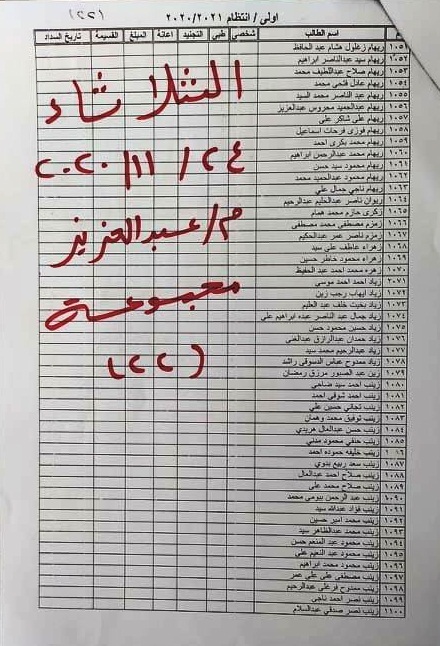 (٢٢)
اولى / انتظام ٢٠٢٠/٢٠٢١
اسم الطالب شخصى طبى التجنيد اعانة المبلغ القسيمة تاريخ السداد
١٠٥١ ريهام زغلول هشام عبد الحافظ
١٠٥٢ ريهام سيد عبدالناصر ابراهيم
١٠٥٣ ريهام صلاح عبداللطيف محمد
ريهام عادل فتحى محمد
ريهام عبد الناصر محمد السيد
١٠٥٦ ريهام عبدالحميد محروس عبدالعزيز
١٠٥٧ ريهام على شاكر على
١٠٥٨ ريهام فوزى فرحات اسماعيل
١٠٥٩ ريهام محمد بكرى احمد
١٠٦٠ ريهام محمد عبدالرحمن ابراهيم
١٠٦١ ريهام محمود سيد حسن
١٠٦٢ ريهام محمود عبدالحميد محمد
١٠٦٣ ريهام ناجى جمال على
١٠٦٤ ريوان ناصر عبدالحليم عبدالرحيم
١٠٦٥ زكرى حازم محمد همام
١٠٦٦ زمزم مصطفى محمد مصطفى
١٠٦٧ زمزم ناصر عمر عبدالحكيم
١٠٦٨ زهراء عاطف على سيد
١٠٦٩ زهراء محمود خاطر حسين
١٠٧٠ زهره محمد احمد عبد الحفيظ
زياد احمد احمد موسى
١٠٧٢ زياد ايهاب رجب زين
١٠٧٣ زياد بخيت خلف عبد العليم
١٠٧٤ زياد جمال عبد الناصر عبده ابراهيم على
١٠٧٥ زياد حسين محمود حسن
١٠٧٦ زياد حمدان عبدالرازق عبدالغنى
١٠٧٧ زياد عبدالرحيم محمد سيد
١٠٧٨ زياد ممدوح عباس الدسوقى راشد
١٠٧٩ زين عبد الصبور مرزق رمضان
١٠٨٠ زينب احمد سيد ضاحى
١٠٨١ زينب احمد شوقى احمد
١٠٨٢ زينب تجانى حسين على
١٠٨٣ زينب توفيق محمد وهمان
١٠٨٤ زينب حسن عبدالعال هريدى
١٠٨٥ زينب حنفى محمود مدنى
زينب خليفه حموده احمد
١٠٨٧ زينب سعد ربيع بدوي
١٠٨٨ زينب صلاح احمد عبدالعال
١٠٨٩ زينب صلاح محمد على
١٠٩٠ زينب عبد الرحمن بيومى محمد
١٠٩١ زينب فؤاد عبدالله سيد
١٠٩٢ زينب محمد امير حسين
١٠٩٣ زينب محمد عبدالظاهر سيد
١٠٩٤ زينب محمود عبد المنعم حسن
١٠٩٥ زينب محمود عبد النعيم على
١٠٩٦ زينب محمود محمد ابراهيم
١٠٩٧ زينب مصطفى على على عمر
١٠٩٨ زينب ممدوح فرغلى عبدالرحيم
١٠٩٩ زينب نصر احمد ناجى
١١٠٠ زينب نصر صدقى عبدالسلام
الثلاثاء
٢٤ / ١١ / ٢٠٢٠
م / عبدالعزيز
مجموعة
(٢٢)